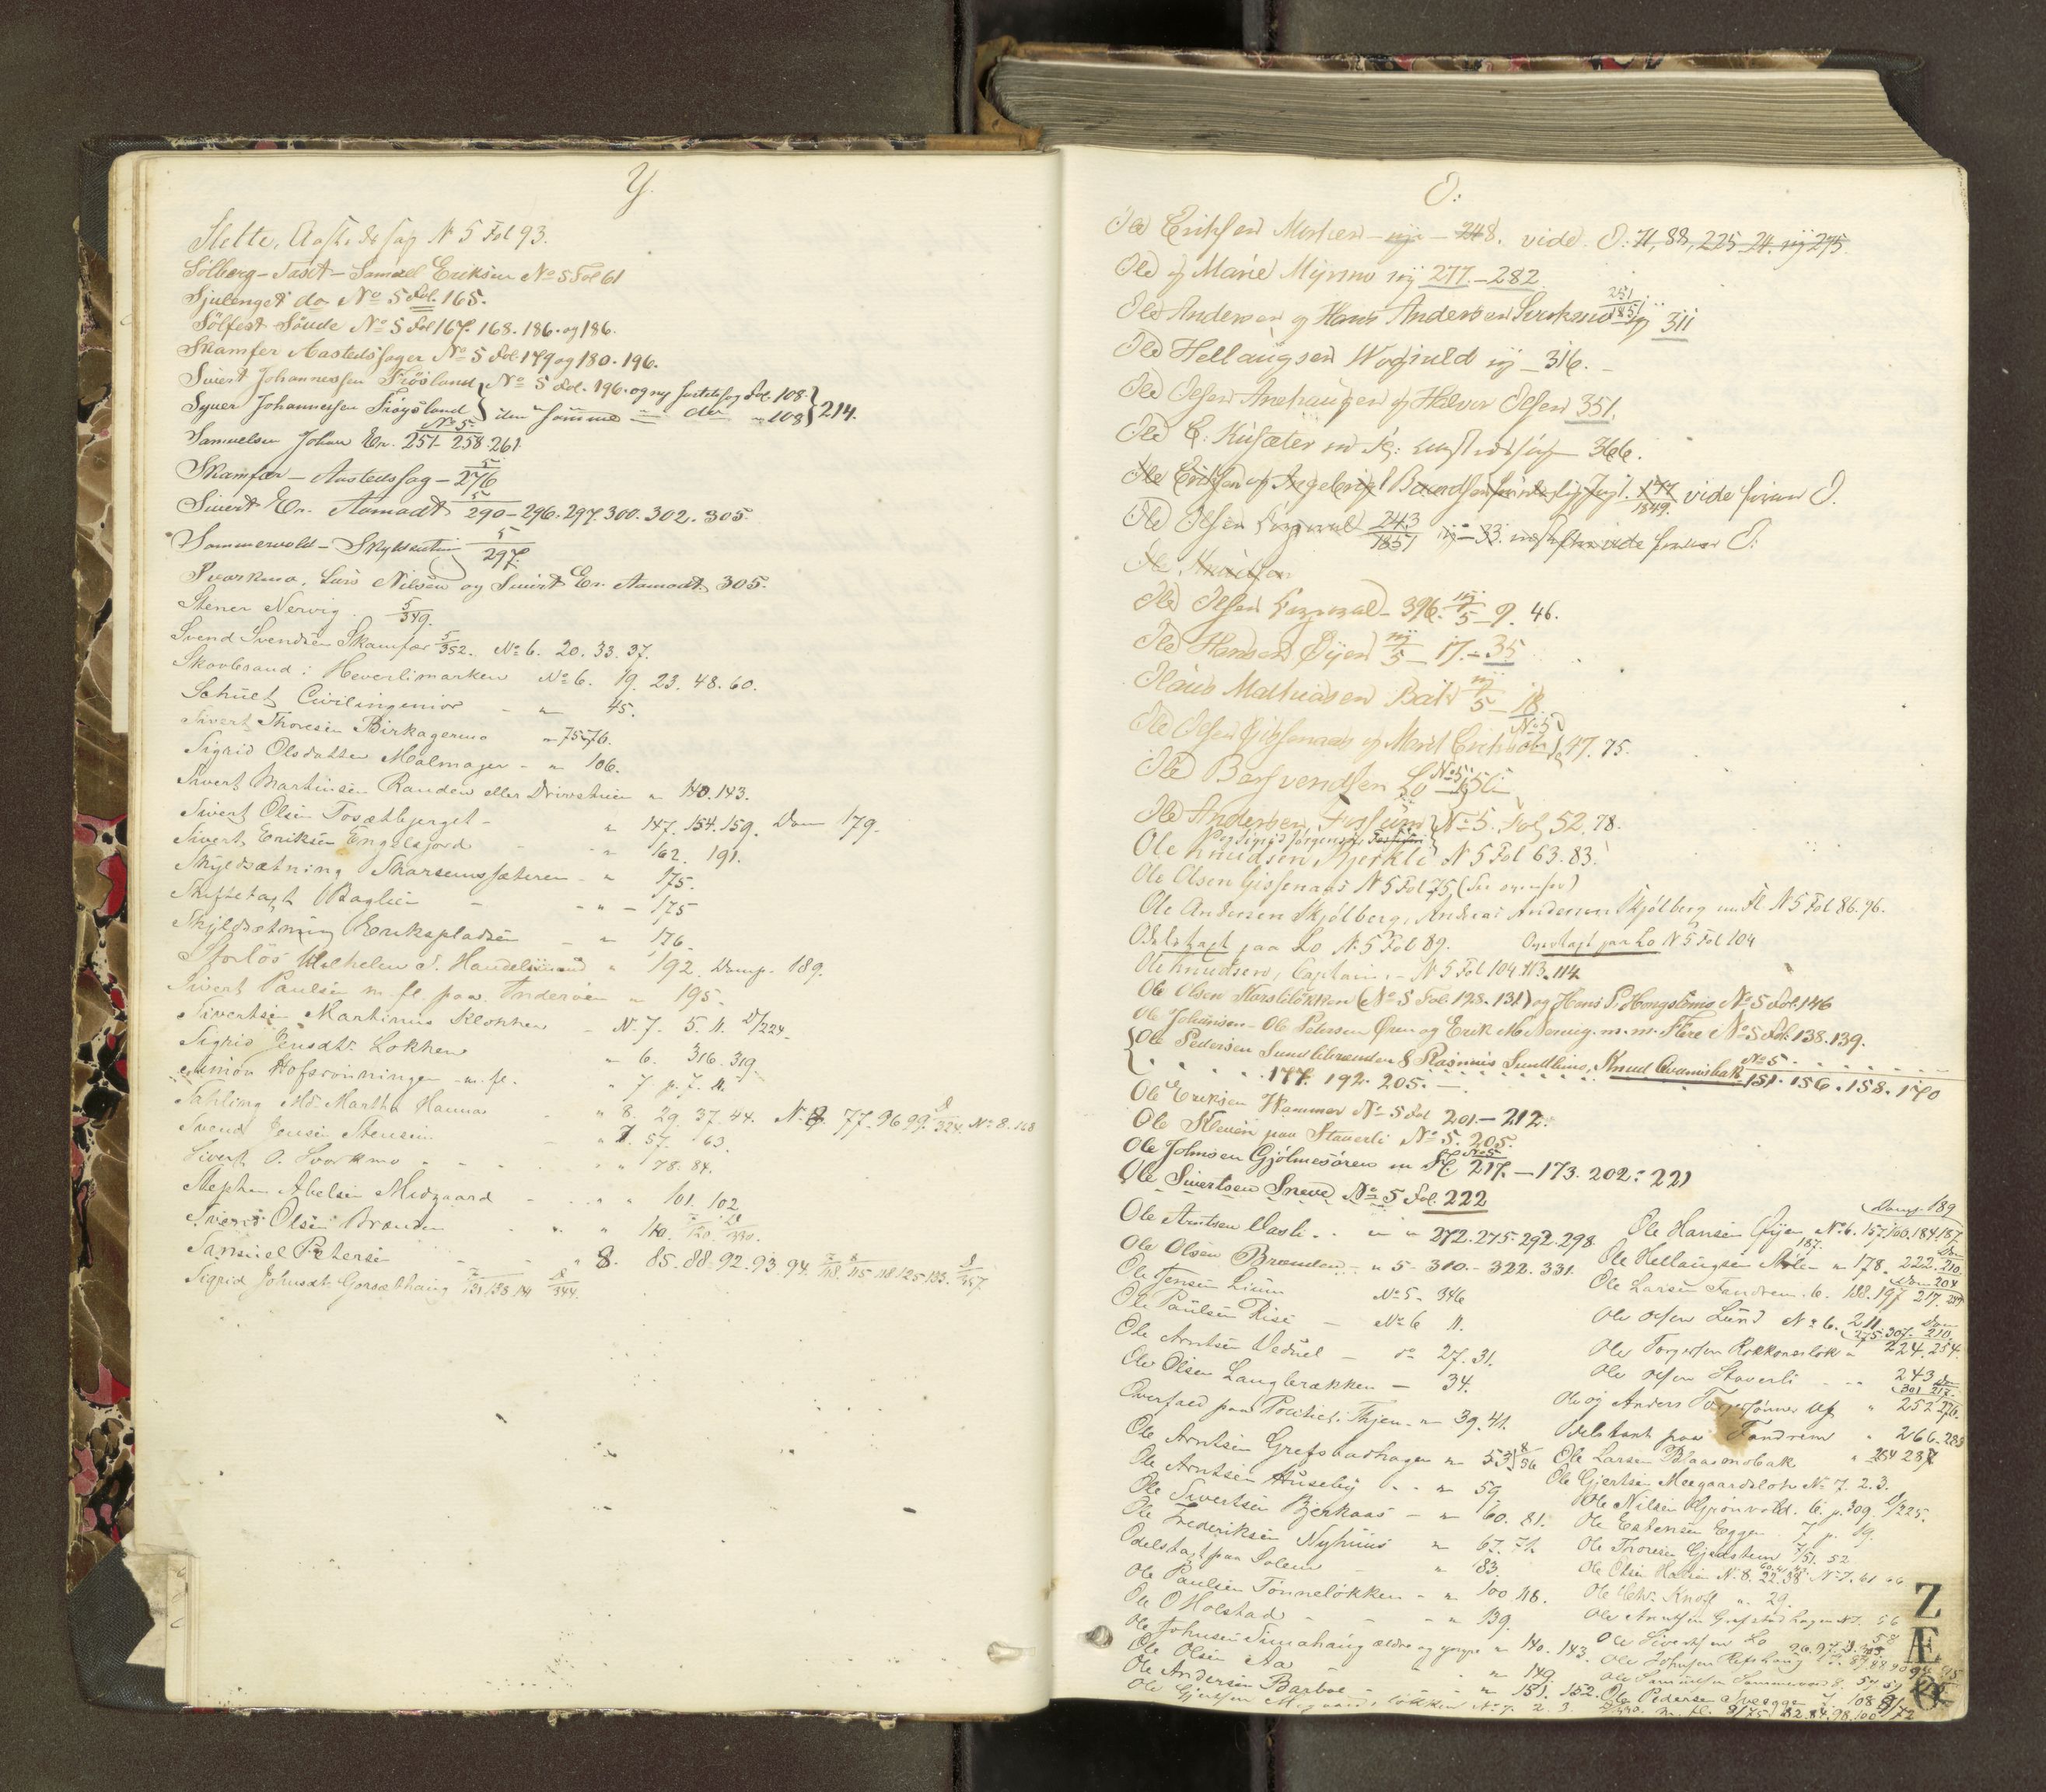 Y.
Slette, Aasteds sag N 5 Fol 93.
Sólberg - Taxt - Samuel Eriksen No 5 Fol 61
Sjulenget do No 5 Fol. 165.
Sölfest Sóude No 5 Fol 167. 168. 186. og 186.
Skamfer Aastedssager No 5 Fol. 179 og 180. 196.
Sivert Johannessen Fröisland No 5 Fol. 196. og ny Fol. 108.
Syver Johannessen Fröysland den samme 108 } 214.
Samuelsen Johan Er. No 5. 251 - 258. 261
Skamfær - Aastedssag - 5/276
Sivert Er. Aamodt 5/290 - 296. 297. 300. 302. 305.
Sommervold - Skyldsætning 5/297.
Svorkmo, Lars Nilsen og Sivert Er. Aamodt 305.
Stener Nervig 5/349.
Svend Svendsen Skamfær 5/352. No 6. 20. 33. 37.
Skovbrand i Heverlimarken No 6. 19. 23. 48. 60.
Schult Civilingeniør - " 45.
Sivert Thoresen Birkagermo " 75-76.
Sigrid Olsdatter Malmager - " 106.
Sivert Martinsen Randen eller Drivstuen " 140. 143.
Sivert Olsen Tosætbjerget - " 147. 154. 159. Dom 179.
Sivert Eriksen Engelsjord " 162. 191.
Skyldsætning Skarsemssæteren - " 175.
Skiftetaxt Baglien - " - 175
Skyldsætning Erikspladsen - " 176
Vilhelm S. Handelsmand " 192. Domp. 189.
Sivert Paulsen m. fl. paa Inderøen " 195.
Sivertsen Martinus Klokken - N. 7. 5. 11. D/224.
Sigrid Jensdtr. Lokken " 6. 316. 319.
Simon Hofsrönningen m. fl. " 7 p. 7. 11.
Sahling Md. Martha Hanna " 8. 29. 37. 44. N. 8. 77. 96 99. 8/324. No 8. 148
Svend Jensen Stensem " 7. 57. 63.
Sivert O. Svorkmo " 78. 84.
Stephen Abelsen Midgaard " 101. 102
Sivert Olsen Brænden " 110. 7/120. D/330.
Samuel Petersen " 8. 85. 88. 92. 93. 94. 7/118. 8/115 118. 125. 133. 8/457.
Sigrid Johnsdt. Gorsæthaug 7/131. 138. 141 8/344.
O:
Ole Eriksen Moshen - ny - 248. vide O. 71, 88, 225 24. ny 275
Ole og Marie Myrmo ny 277. - 282
Ole Andersen og Hans Andersen Svorkmo 251/1851 ny 311
Ole Hellaugsen Wognild ny - 316. -
Ole Olsen Anehaugen og Halvor Olsen 351.
Ole E. Kusæter 366.
Ole Eriksen og Ingebrigt Baardsen 177/1849. vide foran O.
Ole Olsen 243/1851 ny - 33. vide foran O:
Ole Knudsen
Ole Olsen - 396. ny/5 - 9. 46.
Ole Hansen Øyen ny/5 - 17. - 35
Mathiasen Bak ny/5 - 18.
Ole Olsen Gisfenaas og Marit Eriksen No 5 47. 75.
Ole Baarsvendsen Lo No 5. 51
Ole Andersen Fossum No 5. Fol 52. 78.
Ole Knudsen Bjerkli N 5 Fol 63. 83.
Ole Olsen Gisfenaas N 5 Fol 75 (See ovenfor)
Ole Andersen Skjólberg, Andreas Andersen Skjólberg m. Fl N 5 Fol 86. 96.
Odelstaxt paa Lo N. 5 Fol 89. paa Lo N 5 Fol 104
Ole Knudsen, Captain, - N 5 Fol 104. 113. 114
Ole Olsen Storslilökken (No 5 Fol. 128. 131) og Hans P. Hongslimo No 5 Fol. 146
Ole Johansen - Ole Petersen Øren og Erik M. Nervig. m. m. Flere No 5 Fol. 138. 139.
Ole Pedersen Sundlibrænden & Rasmus Sundlimo, Knud Qvamsbak No 5 151. 156. 158. 170
177. 192. 205. -
Ole Eriksen Hammer No 5 Fol 201. - 212.
Ole Steven paa Staverli No 5. 205.
Ole Johnsen Gjölmesören m Fl No 5 217. - 173. 202. 221
Ole Sivertsen Sneve No 5 Fol. 222
Ole Arntsen Vasli. . " " 272. 275. 292. 298.
Ole Olsen Brænden - " 5 - 310. - 322. 331.
Ole Jensen Lium No 5 - 346
Ole Paulsen Risi - No 6 11.
Ole Arntsen Veduel - do 27. 31.
Ole Olsen Langbrækken - 34.
Overfald paa Politiet i Thjem - " 39. 41.
Ole Arntsen Grefstadhagen " 53. 8/56
Ole Arntsen Huseby - . " 59
Ole Sivertsen Bjerkaas - " 60. 81.
Ole Frederiksen Nyhuus " 67. 71.
Odelstaxt paa Solem - " 83.
Ole Paulsen Tonnelókken - " 100 118.
Ole O Holstad - " 139.
Ole Johnsen Simahaug ældre og yngre " 140. 143.
Ole Olsen Aa - " 149.
Ole Andersen Barboe - " 151. 152.
Ole Gjertsen Megaardsløkken No 7. 2. 3.
Domp. 189
Ole Hansen Øyen No 6. 157. 160. 184. 187.
187.
Ole Hellaugsen " 178. 222. Dom 210
Ole Larsen Fandrem. 6. 188. 197 217. Dom 204
Ole Olsen Lund No 6. 211. Dom 210.
275. 307.
Ole Torgersen Rokkoneslök " 224. 254.
Ole Olsen Staverli - " 243 Dom 217.
301
Ole og Anders " 252 276.
Odelstaxt paa Fandrem " 266. 283
Ole Larsen Blaasmobak " 264 287
Ole Gjertsen Meegaardsløk No 7. 2. 3.
Ole Nilsen Grönvold. 6. p. 309 D/225.
Ole Estensen Eggen 7 p. 19.
Ole Thoresen Gjedstem 7/51. 52
Ole Olsen N. 8. 22. 38. No 7. 61
Ole Chr. Knoff " 29.
Ole Arntsen Grefstadhagen N 7. 56
Ole Sivertsen Lo 58
Ole Johnsen
Ole Samuelsen Sommervold 8. 57 59
Ole Pedersen 7. 108 8/72
m. fl. 9/75 82. 84. 98. 100
Z
Æ
Ø